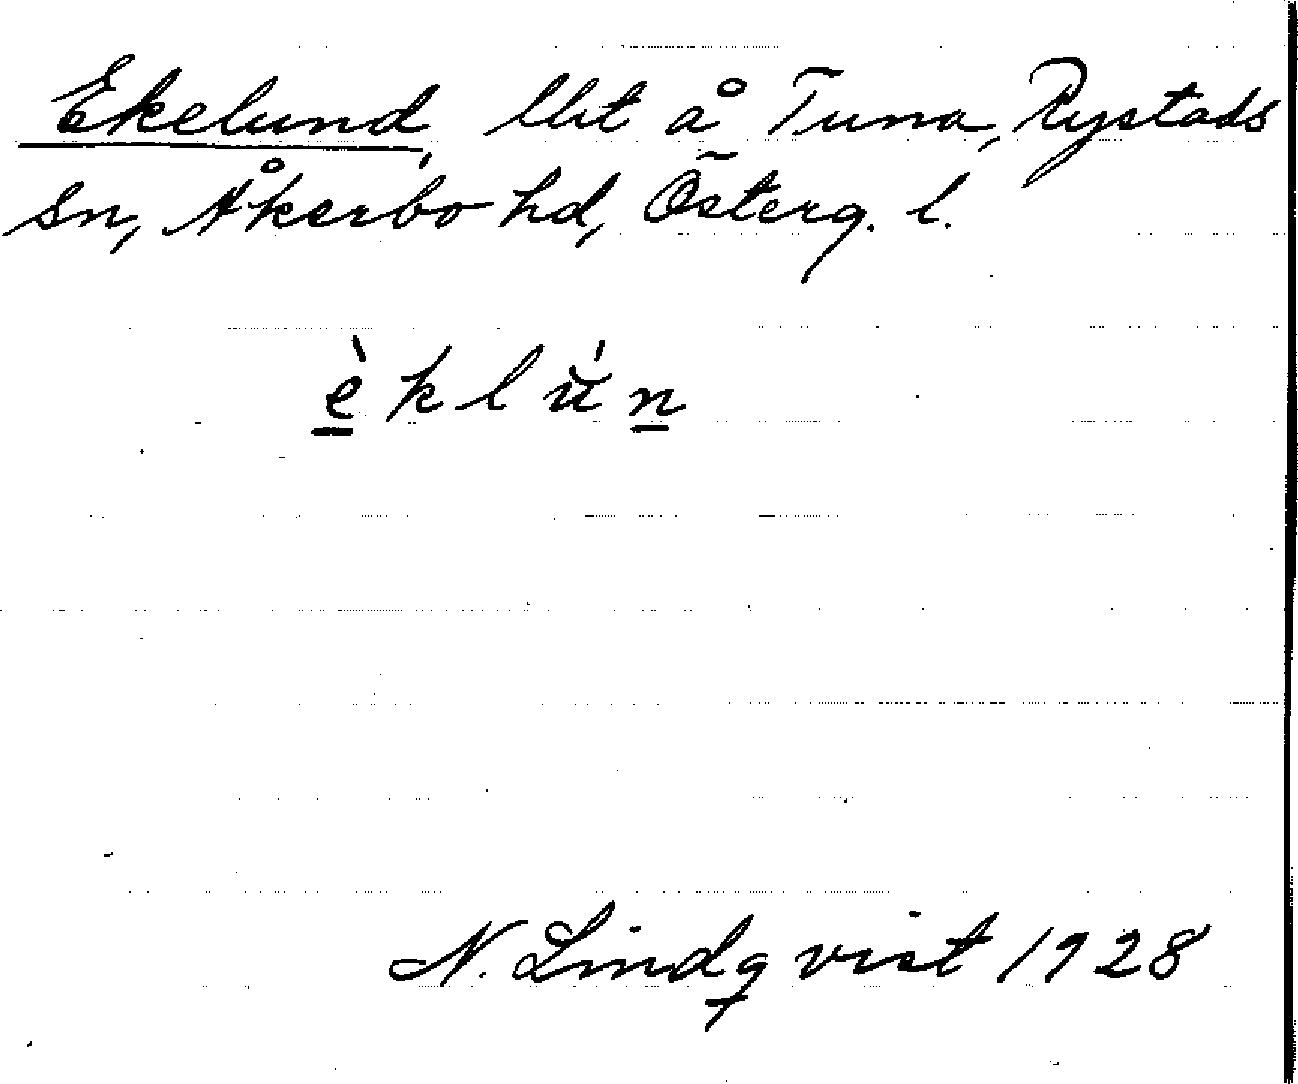 Ekelund, lht å Tuna, Rystads
sn, Åkerbo hd, Österg. l.
èklŭ́n
N. Lindqvist 1928